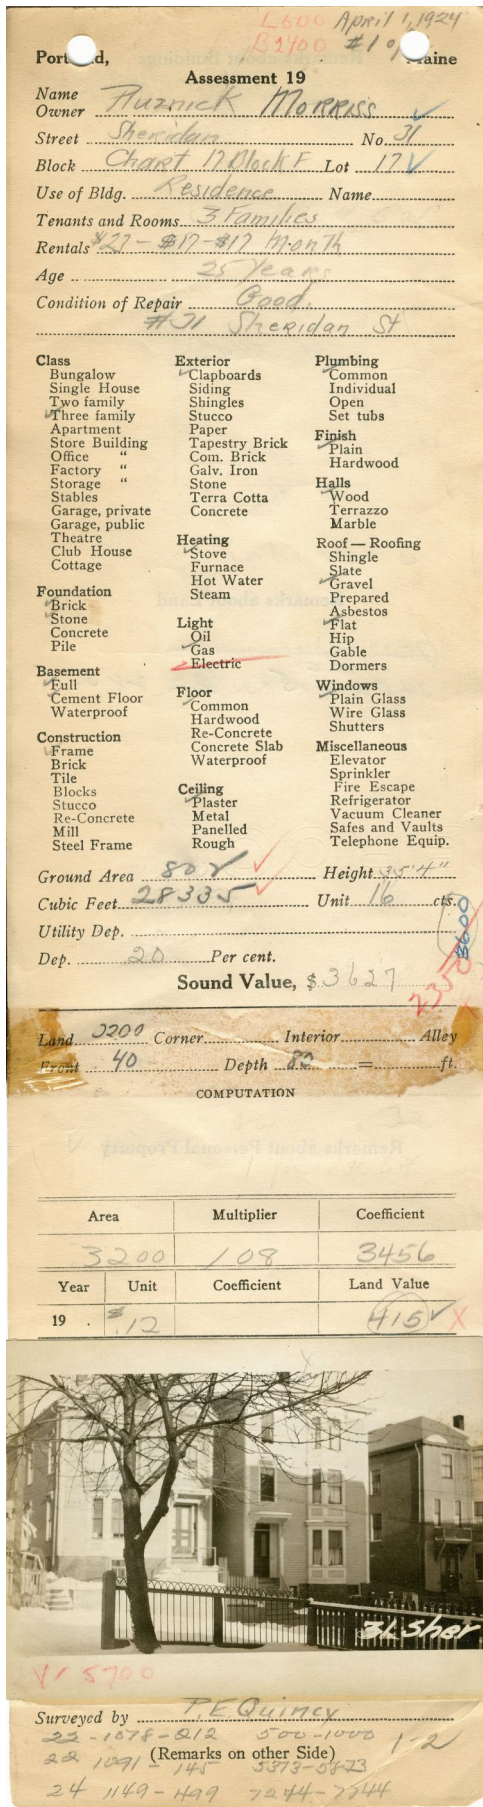 L500 April 1, 1924
B2400 #1 of
Port nd, Maine
Assessment 19
Name
Owner Pluznick Morriss
Street Sheridan No. 31
Block Chart 17 Block F Lot 17
Use of Bldg. Residence Name
Tenants and Rooms 3 Families
Rentals $27-$17-$17 Month
Age 25 Years
Condition of Repair Good.
#31 Sheridan St
Class
Bungalow
Single House
Two family
Three family
Apartment
Store Building
Office "
Factory "
Storage "
Stables
Garage, private
Garage, public
Theatre
Club House
Cottage
Foundation
Brick
Stone
Concrete
Pile
Basement
Full
Cement Floor
Waterproof
Construction
Frame
Brick
Tile
Blocks
Stucco
Re-Concrete
Mill
Steel Frame
Exterior
Clapboards
Siding
Shingles
Stucco
Paper
Tapestry Brick
Com. Brick
Galv. Iron
Stone
Terra Cotta
Concrete
Heating
Stove
Furnace
Hot Water
Steam
Light
Oil
Gas
Electric
Floor
Common
Hardwood
Re-Concrete
Concrete Slab
Waterproof
Ceiling
Plaster
Metal
Panelled
Rough
Plumbing
Common
Individual
Open
Set tubs
Finish
Plain
Hardwood
Halls
Wood
Terrazzo
Marble
Roof — Roofing
Shingle
Slate
Gravel
Prepared
Asbestos
Flat
Hip
Gable
Dormers
Windows
Plain Glass
Wire Glass
Shutters
Miscellaneous
Elevator
Sprinkler
Fire Escape
Refrigerator
Vacuum Cleaner
Safes and Vaults
Telephone Equip.
Ground Area 802 Height 35'4"
Cubic Feet 28335 Unit 16 cts.
Utility Dep.
3600
2350
Dep. 20 Per cent.
Sound Value, $ 3627
Land 2200 Corner Interior Alley
Front 40 Depth 80 = ft.
COMPUTATION
Area Multiplier Coefficient
3200 108 3456
Year Unit Coefficient Land Value
19 . $.12 415
31 Sher
5700
Surveyed by P.E. Quincy
22-1078-212 500-1000
(Remarks on other Side) 1-2
22 1091-145 5373-5873
24 1149-499 7244-7744